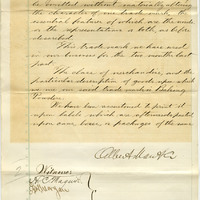 be omitted without materially altering
the character of our trade mark, the
essential feature of which is the
in the representation is both as before
described
This trade mark we have used
in our business for the two months last
past.
The class of merchandise, and the
particular description of goods upon which
we use said trade mark is Baking
Powder.
We have been accustomed to print it
upon labels which are afterwards pasted
upon cans, boxes, or packages of the ware
Witnesses